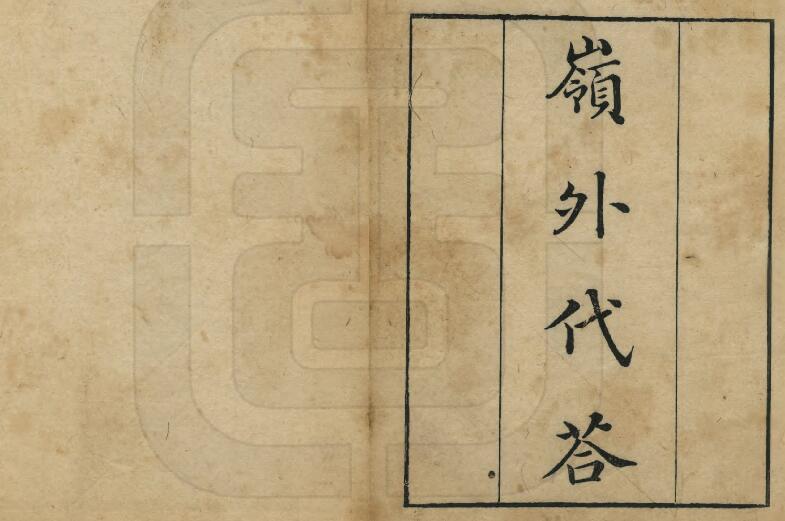 嶺外代荅